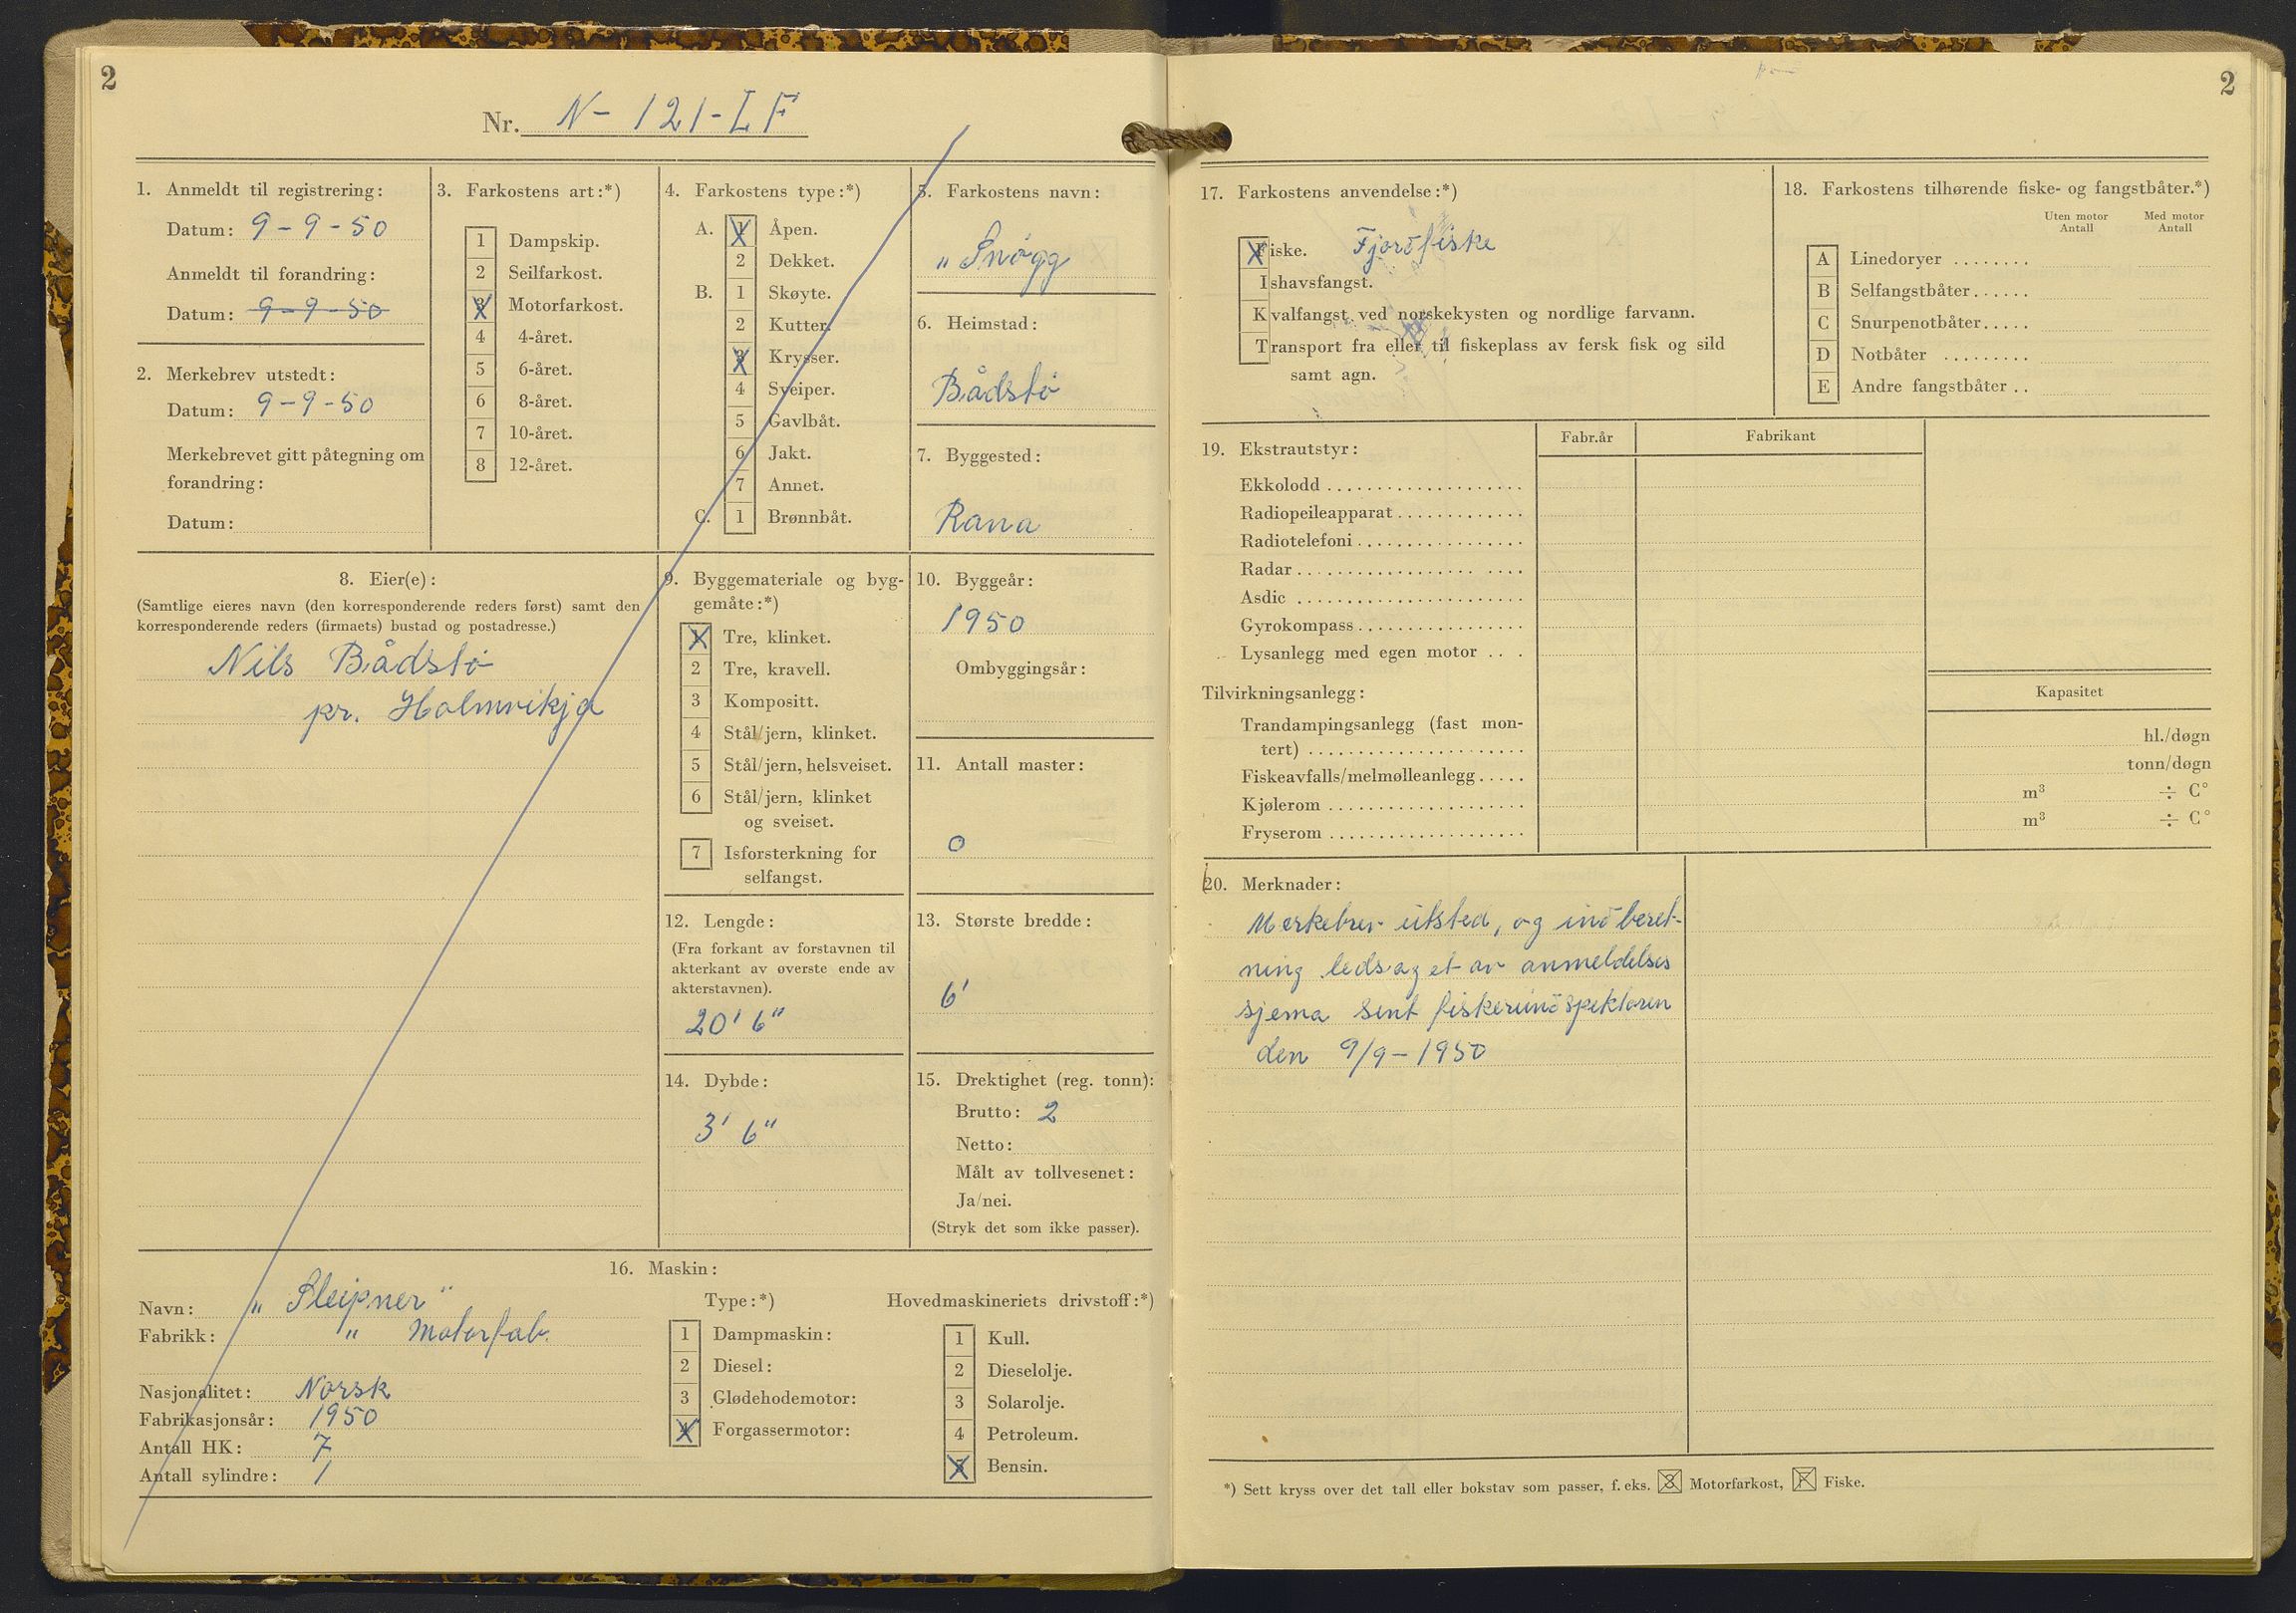 2
Nr. N - 121 - LF
1. Anmeldt til registrering:
Datum: 9-9-50
Anmeldt til forandring:
Datum: 9-9-50
2. Merkebrev utstedt:
Datum: 9-9-50
Merkebrevet gitt påtegning om
forandring:
Datum:
3. Farkostens art:*)
1 Dampskip.
2 Seilfarkost.
3 Motorfarkost.
4 4-året.
5 6-året.
6 8-året.
7 10-året.
8 12-året.
4. Farkostens type:*)
A. 1 Åpen.
2 Dekket.
B. 1 Skøyte.
2 Kutter.
3 Krysser.
4 Sveiper.
5 Gavlbåt.
6 Jakt.
7 Annet.
C. 1 Brønnbåt.
5. Farkostens navn:
" Snøgg
6. Heimstad:
Bådstø
7. Byggested:
Rana
8. Eier(e):
(Samtlige eieres navn (den korresponderende reders først) samt den
korresponderende reders (firmaets) bustad og postadresse.)
Nils Bådstø
pr. Holmvikja
9. Byggemateriale og byg-
gemåte:*)
1 Tre, klinket.
2 Tre, kravell.
3 Kompositt.
4 Stål/jern, klinket.
5 Stål/jern, helsveiset.
6 Stål/jern, klinket
og sveiset.
7 Isforsterkning for
selfangst.
10. Byggeår:
1950
Ombyggingsår:
11. Antall master:
0
12. Lengde:
(Fra forkant av forstavnen til
akterkant av øverste ende av
akterstavnen).
20' 6"
13. Største bredde:
6'
14. Dybde:
3' 6"
15. Drektighet (reg. tonn):
Brutto: 2
Netto:
Målt av tollvesenet:
Ja/nei.
(Stryk det som ikke passer).
16. Maskin:
Navn: " Sleipner "
Fabrikk: " Motorfab.
Nasjonalitet: Norsk
Fabrikasjonsår: 1950
Antall HK: 7
Antall sylindre: 1
Type:*)
1 Dampmaskin:
2 Diesel:
3 Glødehodemotor:
4 Forgassermotor:
Hovedmaskineriets drivstoff:*)
1 Kull.
2 Dieselolje.
3 Solarolje.
4 Petroleum.
5 Bensin.
2
17. Farkostens anvendelse:*)
Fiske. Fjordfiske
Ishavsfangst.
Kvalfangst ved norskekysten og nordlige farvann.
Transport fra eller til fiskeplass av fersk fisk og sild
samt agn.
18. Farkostens tilhørende fiske- og fangstbåter.*)
Uten motor Antall
Med motor Antall
A Linedoryer ........
B Selfangstbåter......
C Snurpenotbåter.....
D Notbåter .........
E Andre fangstbåter ..
19. Ekstrautstyr:
Fabr.år
Fabrikant
Ekkolodd
Radiopeileapparat
Radiotelefoni
Radar
Asdic
Gyrokompass
Lysanlegg med egen motor ...
Tilvirkningsanlegg:
Kapasitet
Trandampingsanlegg (fast mon-
tert) hl./døgn
Fiskeavfalls/melmølleanlegg..... tonn/døgn
Kjølerom m³ ÷ C°
Fryserom m³ ÷ C°
20. Merknader:
Merkebrev utsted, og indberet-
ning ledsaget av anmeldelses
sjema sent fiskeriindspektøren
den 9/9-1950
*) Sett kryss over det tall eller bokstav som passer, f. eks. 3 Motorfarkost, F Fiske.